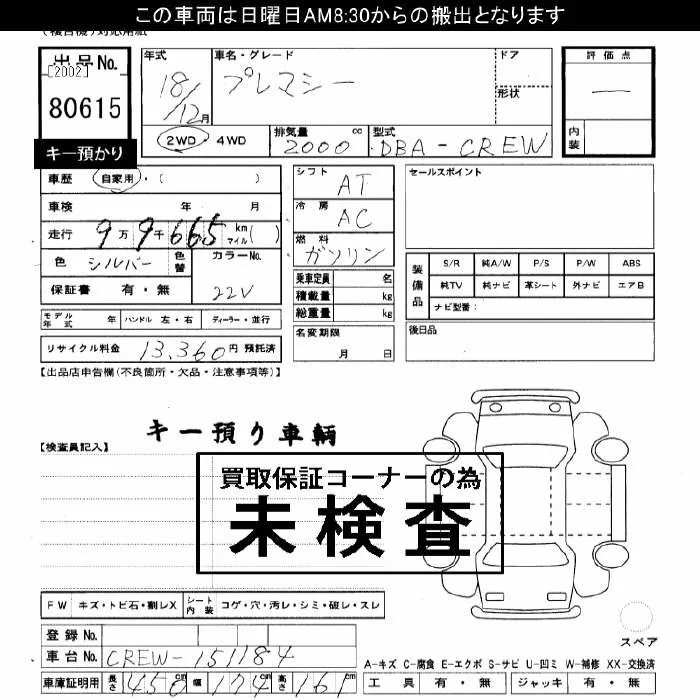 この車両は日曜日AM8:30からの搬出となります
出品No.
[2002]
80615
キー預かり
年式
18/12月
車名・グレード
プレマシー
ドア
形状
評価点
—
内装
2WD・4WD
排気量
2000 cc
型式
DBA-CREW
車歴 自家用・( )
車検 年 月
走行 9万9千665 km マイル( )
色 シルバー 色替 カラーNo.
保証書 有・無 22V
モデル年式 年 ハンドル 左・右 ディーラー・並行
リサイクル料金 13,360円 預託済
シフト
AT
冷房
AC
燃料
ガソリン
乗車定員 名
積載量 kg
総重量 kg
名変期限
月 日
セールスポイント
装備品
S/R 純A/W P/S P/W ABS
純TV 純ナビ 革シート 外ナビ エアB
ナビ型番:
後日品
【出品店申告欄(不良箇所・欠品・注意事項等)】
キー預り車輌
【検査員記入】
買取保証コーナーの為
未検査
FW キズ・トビ石・割レX シート内装 コゲ・穴・汚レ・シミ・破レ・スレ
登録No.
車台No. CREW-151184
車庫証明用 長さ 450 cm 幅 174 cm 高さ 161 cm
スペア
A-キズ C-腐食 E-エクボ S-サビ U-凹ミ W-補修 XX-交換済
工具 有・無 ジャッキ 有・無